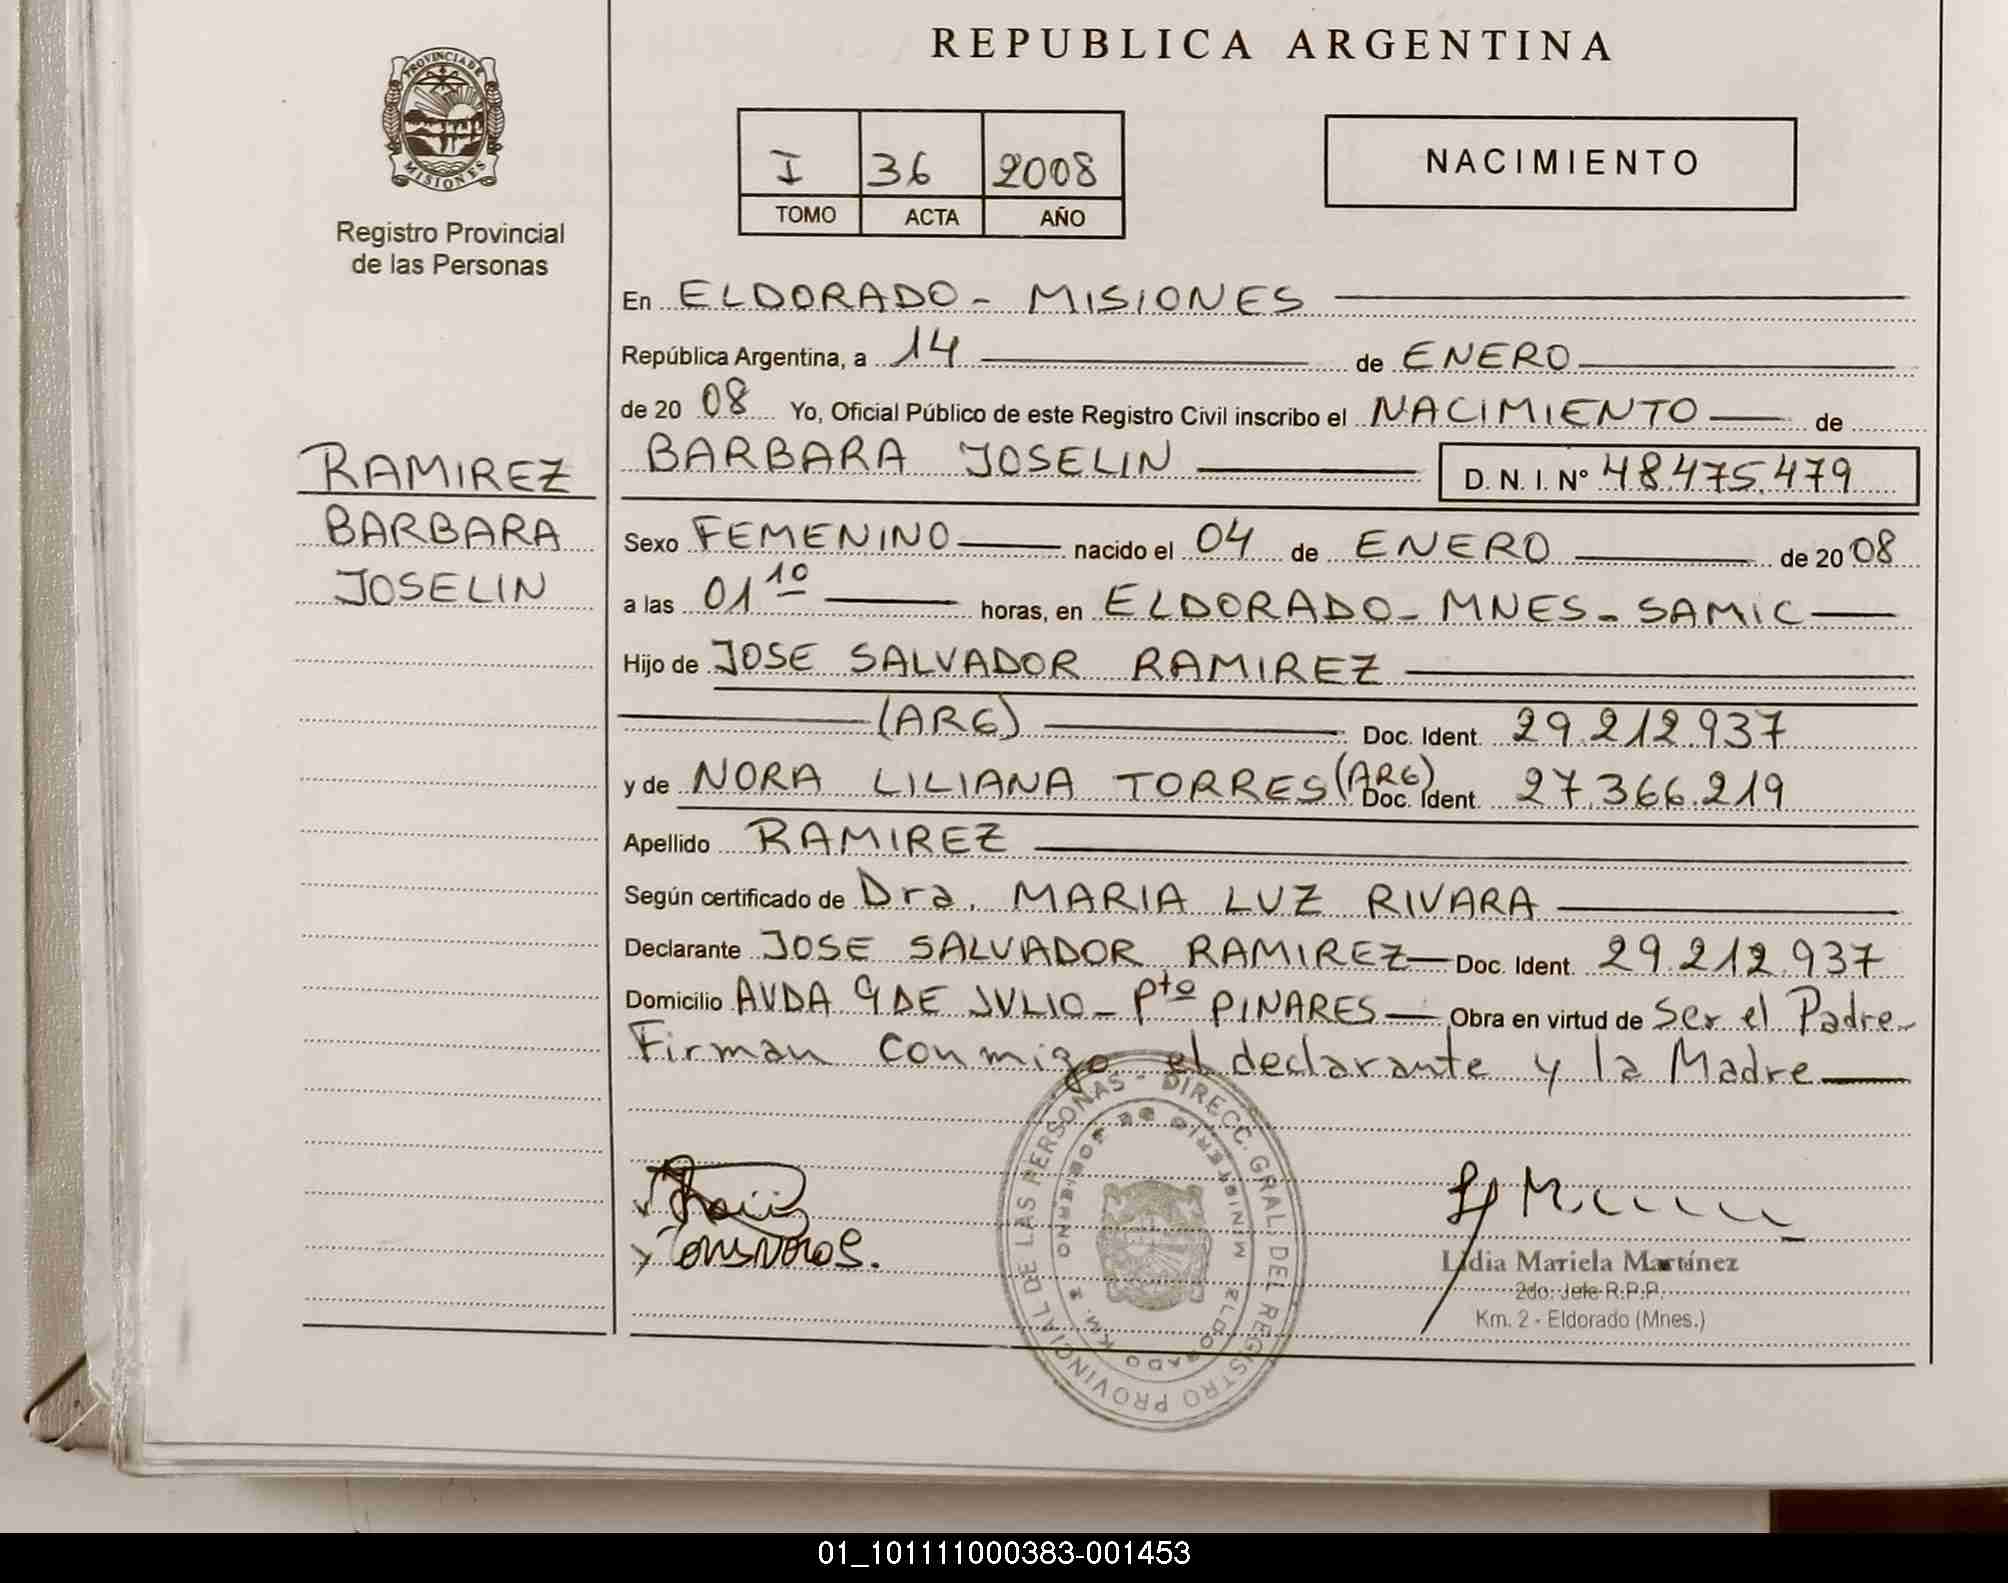 REPUBLICA ARGENTINA
PROVINCIA DE
MISIONES
Registro Provincial
de las Personas
I 36 2008
TOMO ACTA AÑO
NACIMIENTO
En ELDORADO - MISIONES
República Argentina, a 14 de ENERO
de 20 08 Yo, Oficial Público de este Registro Civil inscribo el NACIMIENTO de
RAMIREZ
BARBARA
JOSELIN
BARBARA JOSELIN D. N. I. Nº 48.475.479
Sexo FEMENINO nacido el 04 de ENERO de 20 08
a las 01 10 horas, en ELDORADO - MNES - SAMIC
Hijo de JOSE SALVADOR RAMIREZ
(ARG) Doc. Ident. 29.212.937
y de NORA LILIANA TORRES (ARG) Doc. Ident. 27.366.219
Apellido RAMIREZ
Según certificado de Dra. MARIA LUZ RIVARA
Declarante JOSE SALVADOR RAMIREZ Doc. Ident. 29.212.937
Domicilio AVDA 9 DE JULIO - Pto PINARES Obra en virtud de ser el Padre
Firman conmigo el declarante y la Madre
DIRECC. GRAL. DEL REGISTRO PROVINCIAL DE LAS PERSONAS
MINISTERIO DE GOBIERNO
ELDORADO KM. 2
Lidia Mariela Martínez
2do. Jefe R.P.P.
Km. 2 - Eldorado (Mnes.)
01_101111000383-001453